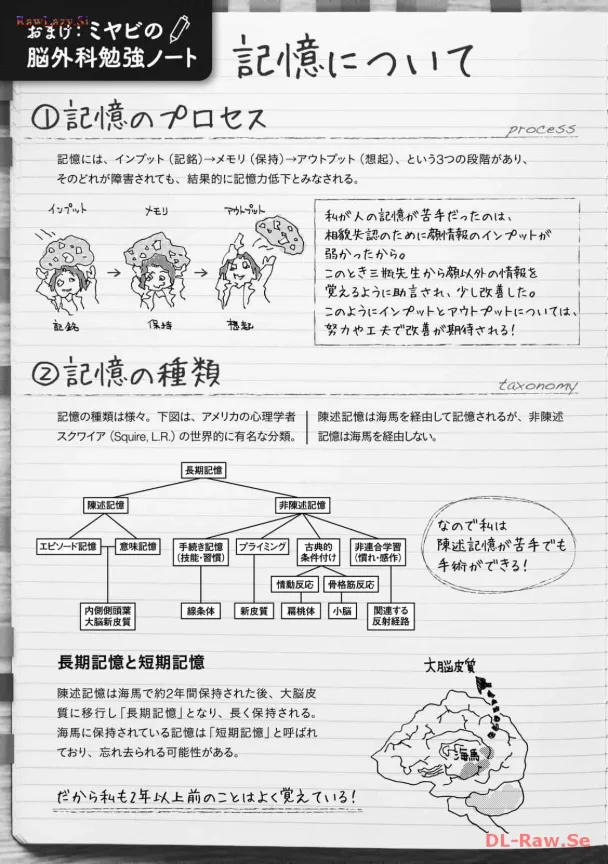 RawLazy.Si
おまけ：ミヤビの
脳外科勉強ノート
記憶について
①記憶のプロセス
process
記憶には、インプット（記銘）→メモリ（保持）→アウトプット（想起）、という3つの段階があり、
そのどれが障害されても、結果的に記憶力低下とみなされる。
インプット
メモリ
アウトプット
→
→
記銘
保持
想起
私が人の記憶が苦手だったのは、
相貌失認のために顔情報のインプットが
弱かったから。
このとき三瓶先生から顔以外の情報を
覚えるように助言され、少し改善した。
このようにインプットとアウトプットについては、
努力や工夫で改善が期待される！
②記憶の種類
taxonomy
記憶の種類は様々。下図は、アメリカの心理学者
スクワイア（Squire, L.R.）の世界的に有名な分類。
陳述記憶は海馬を経由して記憶されるが、非陳述
記憶は海馬を経由しない。
長期記憶
陳述記憶
非陳述記憶
エピソード記憶
意味記憶
手続き記憶
（技能・習慣）
プライミング
古典的
条件付け
非連合学習
（慣れ・感作）
情動反応
骨格筋反応
内側側頭葉
大脳新皮質
線条体
新皮質
扁桃体
小脳
関連する
反射経路
なので私は
陳述記憶が苦手でも
手術ができる！
長期記憶と短期記憶
陳述記憶は海馬で約2年間保持された後、大脳皮
質に移行し「長期記憶」となり、長く保持される。
海馬に保持されている記憶は「短期記憶」と呼ばれ
ており、忘れ去られる可能性がある。
だから私も2年以上前のことはよく覚えている！
大脳皮質
海馬
DL-Raw.Se